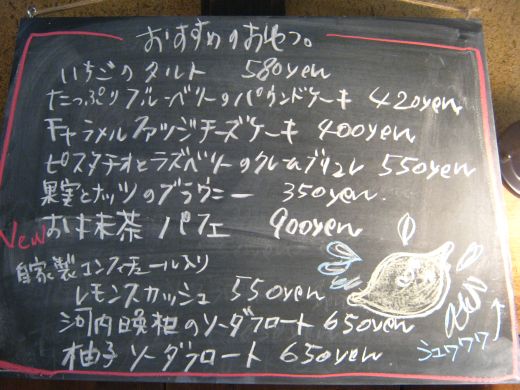 おすすめのおやつ。
いちごのタルト 580yen
たっぷりブルーベリーのパウンドケーキ 420yen
キャラメルファッジチーズケーキ 400yen
ピスタチオとラズベリーのクレームブリュレ 550yen
果実とナッツのブラウニー 350yen.
New お抹茶パフェ 900yen
自家製コンフィチュール入り
レモンスカッシュ 550yen
河内晩柑のソーダフロート 650yen
柚子ソーダフロート 650yen
シュワワワ